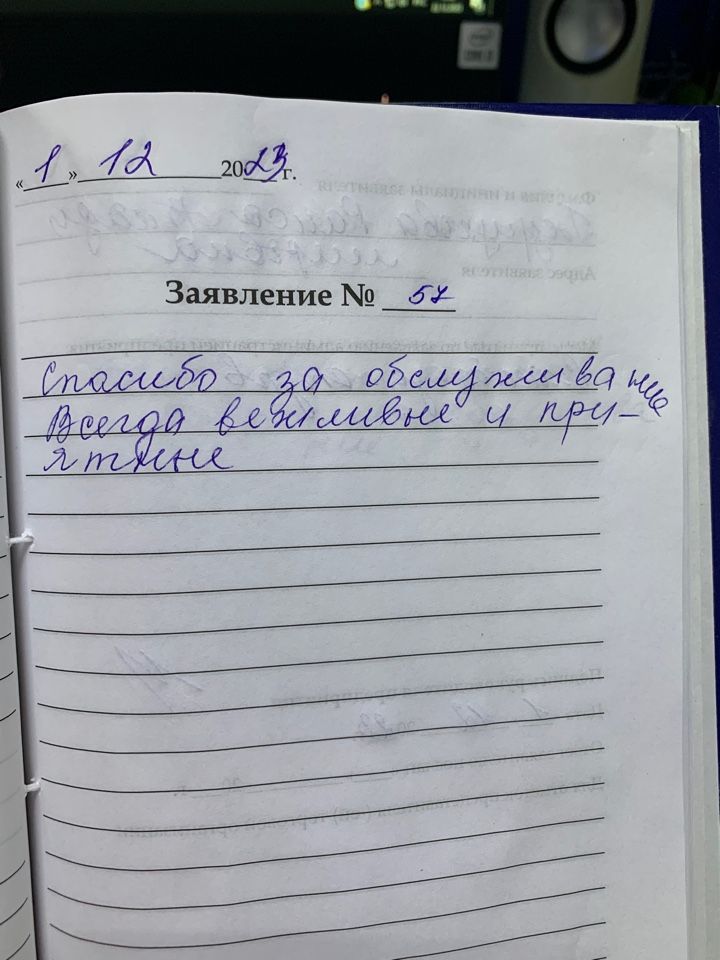 « 1 » 12 2023 г.
Заявление № 57
Спасибо за обслуживание
Всегда вежливые и при-
ятные